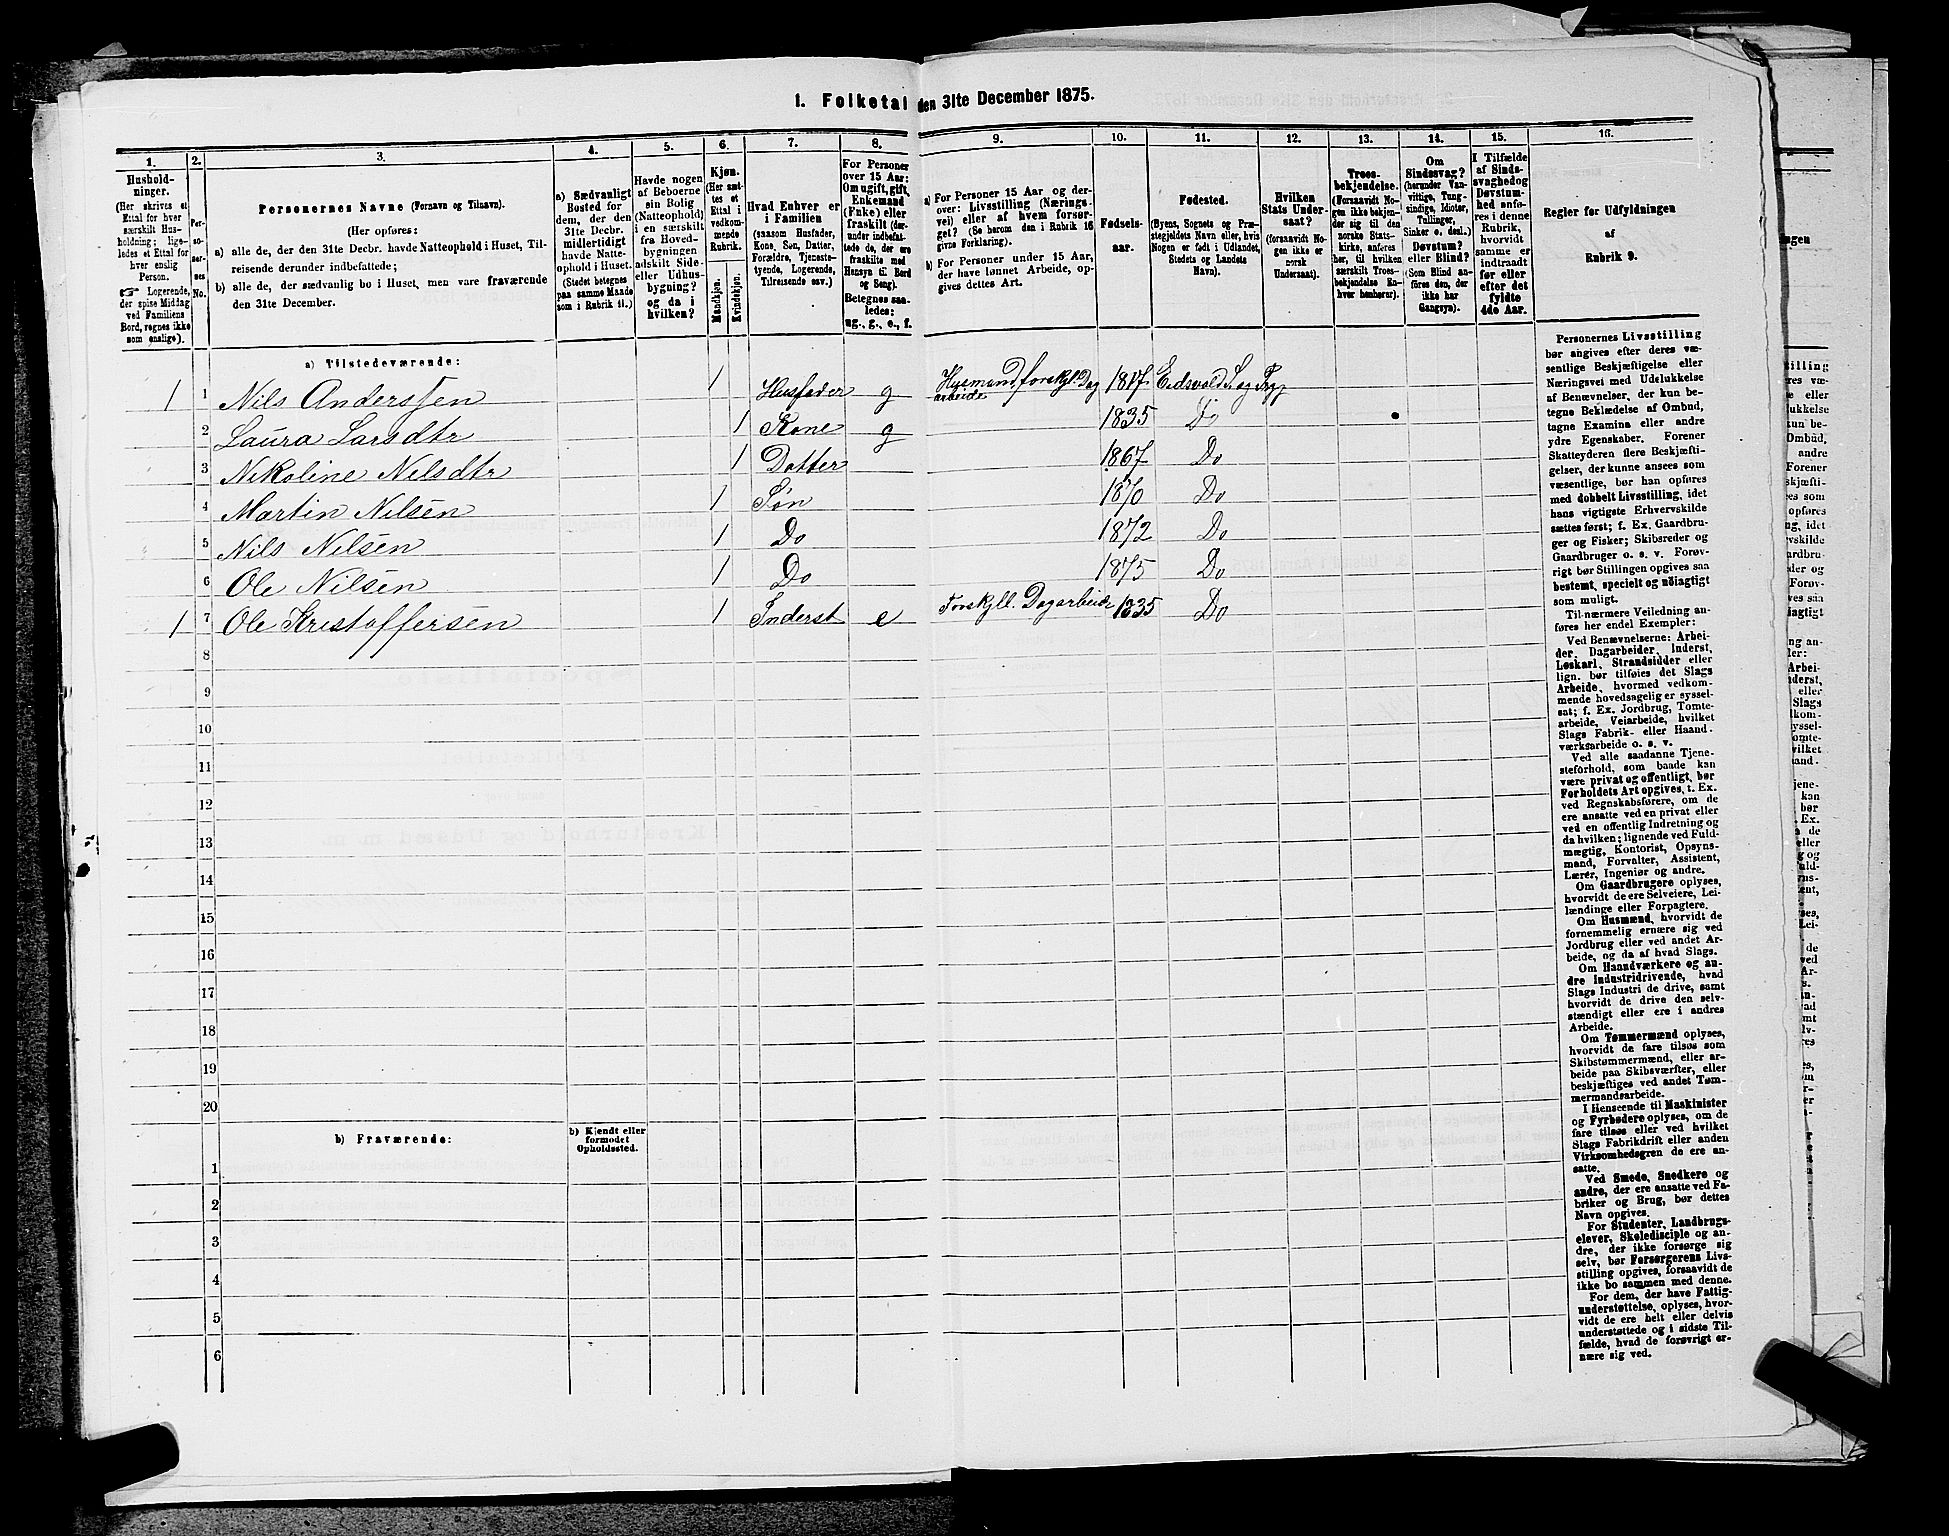 1. Folketal den 31te December 1875.
1.
Hushold-
ninger.
(Her skrives et
Ettal for hver
særskilt Hus-
holdning; lige-
ledes et Ettal for
hver enslig
Person.
Logerende,
der spise Middag
ved Familiens
Bord, regnes ikke
som enslige).
2.
Per-
so-
ner-
nes
No.
3.
Personernes Navne (Fornavn og Tilnavn).
(Her opføres:
a) alle de, der den 31te Decbr. havde Natteophold i Huset, Til-
reisende derunder indbefattede;
b) alle de, der sædvanlig bo i Huset, men vare fraværende
den 31te December.
4.
a) Sædvanligt
Bosted for
dem, der den
31te Decbr.
midlertidigt
havde Natte-
ophold i Huset.
(Stedet betegnes
paa samme Maade
som i Rubrik 11.)
5.
Havde nogen
af Beboerne
sin Bolig
(Natteophold)
i en særskilt
fra Hoved-
bygningen
adskilt Side-
eller Udhus-
bygning?
og da i
hvilken?
6.
Kjøn.
(Her sæt-
tes et
Ettal i
vedkom-
mende
Rubrik.
Mandkjøn.
Kvindekjøn.
7.
Hvad Enhver er
i Familien
(saasom Husfader,
Kone, Søn, Datter,
Forældre, Tjeneste-
tyende, Logerende,
Tilreisende osv.)
8.
For Personer
over 15 Aar:
Om ugift, gift,
Enkemand
(Enke) eller
fraskilt (der-
under indbefat-
tede de, der ere
fraskilte med
Hensyn til Bord
og Seng).
Betegnes saa-
ledes:
ug., g., e., f.
9.
a) For Personer 15 Aar og der-
over: Livsstilling (Nærings-
vei) eller af hvem forsør-
get? (Se herom den i Rubrik 16
givne Forklaring).
b) For Personer under 15 Aar,
der have lønnet Arbeide, op-
gives dettes Art.
10.
Fødsels-
aar.
11.
Fødested.
(Byens, Sognets og Præ-
stegjeldets Navn eller, hvis
Nogen er født i Udlandet,
Stedets og Landets
Navn).
12.
Hvilken
Stats Under-
saat?
(forsaavidt No-
gen ikke er
norsk
Undersaat).
13.
Troes-
bekjendelse.
(Forsaavidt No-
gen ikke bekjen-
der sig til den
norske Stats-
kirke, anføres
her, til hvilken
særskilt Troes-
bekjendelse En-
hver henhører).
14.
Om
Sindssvag?
(herunder Van-
vittige, Tung-
sindige, Idioter,
Tullinger,
Sinker o. desl.)
Døvstum?
eller Blind?
(Som Blind an-
føres den, der
ikke har
Gangsyn).
15.
I Tilfælde
af Sinds-
svaghed og
Døvstum-
hed anfø-
res i denne
Rubrik,
hvorvidt
samme er
indtraadt
før eller
efter det
fyldte
4de Aar.
16.
Regler for Udfyldningen
af
Rubrik 9.
a) Tilstedeværende:
1 1 Nils Anderssen 1 Husfader g Husmand, forskjl. Dag 1817 Eidsvold S. og Prgj
arbeide
2 Laura Larsdtr 1 Kone g 1835 Do
3 Nikoline Nilsdtr 1 Datter 1867 Do
4 Martin Nilsen 1 Søn 1870 Do
5 Nils Nilsen 1 Do 1872 Do
6 Ole Nilsen 1 Do 1875 Do
1 7 Ole Kristoffersen 1 Inderst e Forskjell. Dagarbeide 1835 Do
8
9
10
11
12
13
14
15
16
17
18
19
20
b) Fraværende:
b) Kjendt eller
formodet
Opholdssted.
1
2
3
4
5
6
Personernes Livsstilling
bør angives efter deres væ-
sentlige Beskjæftigelse eller
Næringsvei med Udelukkelse
af Benævnelser, der kun be-
tegne Beklædelse af Ombud,
tagne Examina eller andre
ydre Egenskaber. Forener
Skatteyderen flere Beskjæfti-
gelser, der kunne ansees som
væsentlige, bør han opføres
med dobbelt Livsstilling, idet
hans vigtigste Erhvervskilde
sættes først; f. Ex. Gaardbru-
ger og Fisker; Skibsreder og
Gaardbruger o. s. v. Forøv-
rigt bør Stillingen opgives saa
bestemt, specielt og nöiagtigt
som muligt.
Til nærmere Veiledning an-
føres her endel Exempler:
Ved Benævnelserne: Arbei-
der, Dagarbeider, Inderst,
Løskarl, Strandsidder eller
lign. bør tilføies det Slags
Arbeide, hvormed vedkom-
mende hovedsagelig er syssel-
sat; f. Ex. Jordbrug, Tomte-
arbeide, Veiarbeide, hvilket
Slags Fabrik- eller Haand-
værksarbeide o. s. v.
Ved alle saadanne Tjene-
steforhold, som baade kan
være privat og offentligt, bør
Forholdets Art opgives, t. Ex.
ved Regnskabsførere, om de
ere ansatte ved en privat eller
ved en offentlig Indretning og
da hvilken; lignende ved Fuld-
mægtig, Kontorist, Opsyns-
mand, Forvalter, Assistent,
Lærer, Ingeniør og andre.
Om Gaardbrugere oplyses,
hvorvidt de ere Selveiere, Lei-
lændinge eller Forpagtere.
Om Husmænd, hvorvidt de
fornemmelig ernære sig ved
Jordbrug eller ved andet Ar-
beide, og da af hvad Slags.
Om Haandværkere og an-
dre Industridrivende, hvad
Slags Industri de drive, samt
hvorvidt de drive den selv-
stændigt eller ere i andres
Arbeide.
Om Tømmermænd oplyses,
hvorvidt de fare tilsøs som
Skibstømmermænd, eller ar-
beide paa Skibsværfter, eller
beskjæftiges ved andet Tøm-
mermandsarbeide.
I Henseende til Maskinister
og Fyrbødere oplyses, om de
fare tilsøs eller ved hvilket
Slags Fabrikdrift eller anden
Virksomhedsgren de ere an-
satte.
Ved Smede, Snedkere og
andre, der ere ansatte ved Fa-
briker og Brug, bør dettes
Navn opgives.
For Studenter, Landbrugs-
elever, Skoledisciple og an-
dre, der ikke forsørge sig
selv, bør Forsørgerens Livs-
stilling opgives, forsaavidt de
ikke bo sammen med denne.
For dem, der have Fattig-
understøttelse, oplyses, hvor-
vidt de ere helt eller delvis
understøttede og i sidste Til-
fælde, hvad de forøvrigt er-
nære sig ved.